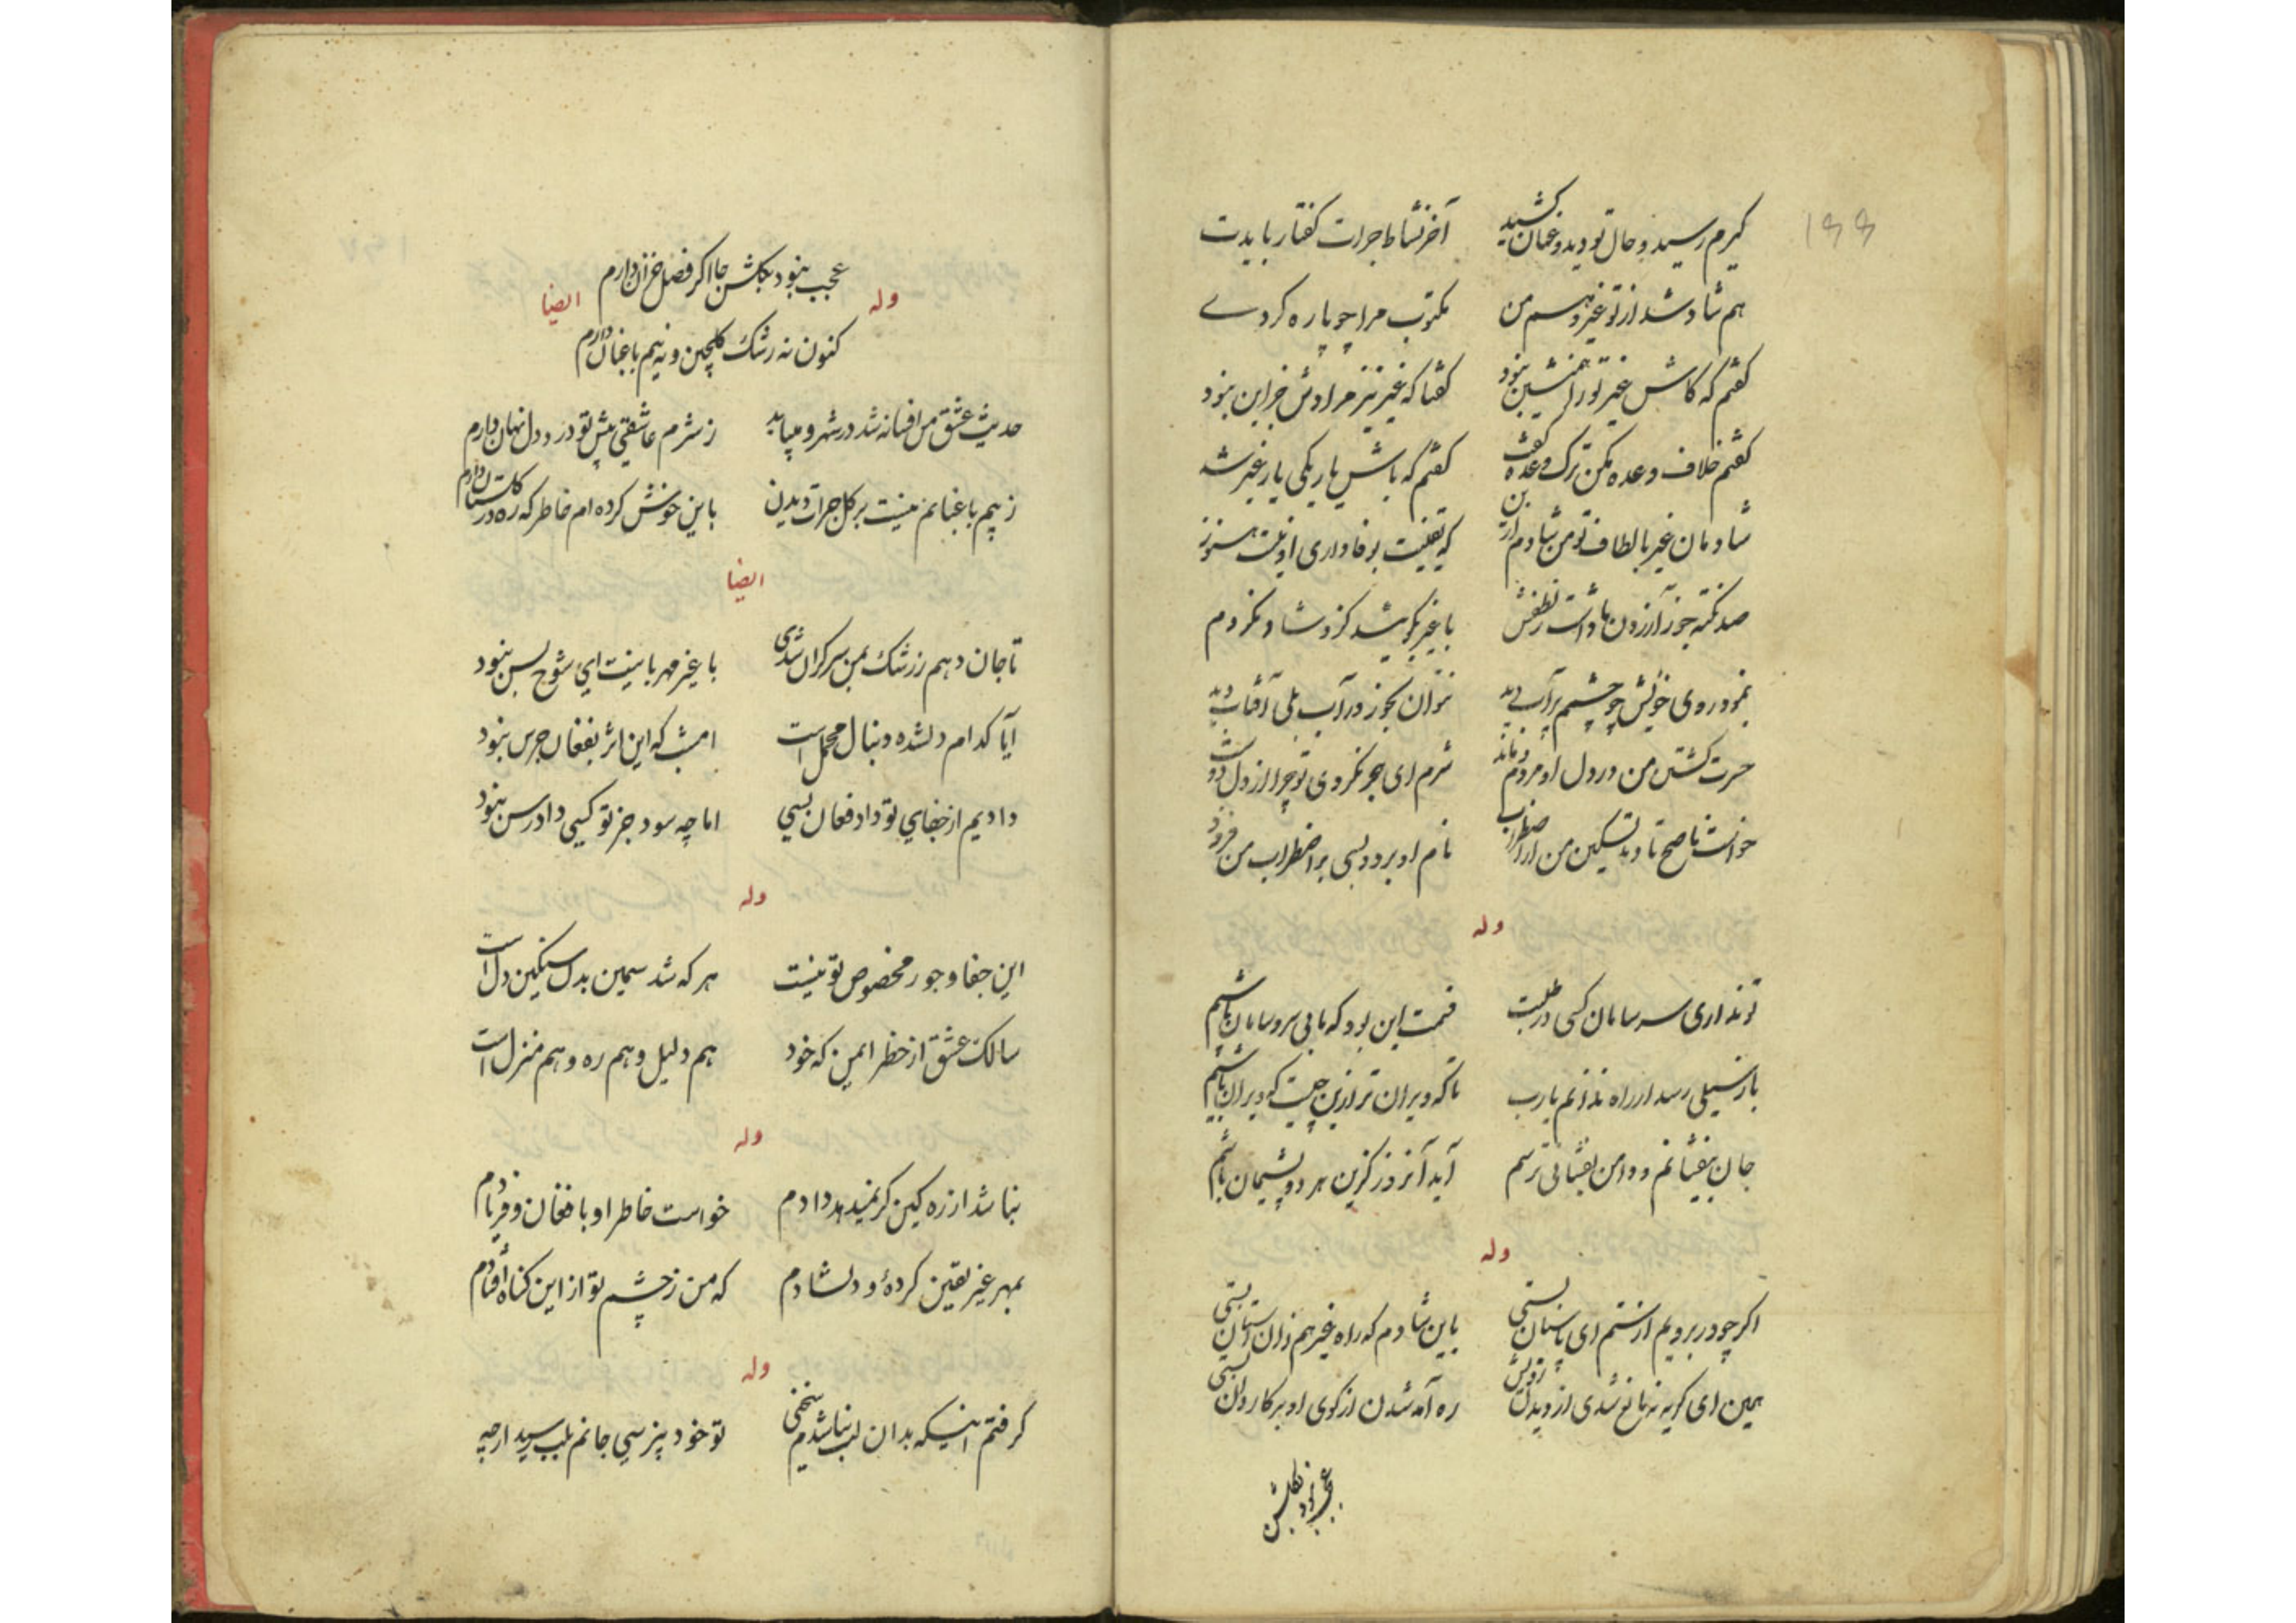 ۱۶۶
گیرم رسید و حال تو دید و عنان کشید آخر نشاط جرات گفتار بایدت
هم شاد شد از تو غیر و هم من مکتوب مرا چو پاره کردے
گفتم که کاش غیر تو را همنشین نبود گفتا که غیر نیز مرادش جز این نبود
گفتم خلاف وعده مکن ترک وعده گفت گفتم که باش یار یکی یار غیر شد
شادمان غیر بالطاف تو من شادم ازین که یقینت بوفاداری او نیست هنوز
صد نکته جز آزردن ما داشت لطفش با غیر
نمود روی خویش چو چشم پرآب دید نتوان بجز در آب بلی آفتاب دید
حسرت کشتن من در دل او مردم و ماند شرم ای هجر نکردی تو چرا از دل دوست
خواست ناصح تا دهد تسکین من از اضطراب نام او برد و بسی بر اضطراب من فزود
وله
تو نداری سر سامان کسی در طلبت قسمت این بود که ما بی سر و سامان باشیم
باز سیلی رسد از راه ندانم یارب تا که ویران تر ازین چیست که ویران باشیم
جان بیفشانم و دامن بفشانی ترسم آید آنروز کزین هر دو پشیمان باشیم
وله
اگر چو در برویم از ستم ای پاسبان بستی باین شادم که راه غیر هم زان آستان بستی
همین ای گریه نه مانع شدی از دیدن رویش ره آمد شدن از کوی او بر کاروان بستی
عجب نبود بگلشن
عجب نبود بگلشن جا اگر فصل خزان دارم
وله ایضا
کنون نه رشک گلچین و نه بیم باغبان دارم
حدیث عشق من افسانه شد در شهر و میباید ز شرم عاشقی پیش تو درد دل نهان دارم
ز بیم باغبانم نیست بر گل جرات دیدن باین خوش کرده ام خاطر که ره در گلستان دارم
ایضا
تا جان دهم ز رشک بمن سرگران شدی با غیر مهربانیت ای شوخ بس نبود
آیا کدام دلشده دنبال محمل است امشب که این اثر بفغان جرس نبود
دادیم از جفای تو داد فغان بسی اما چه سود جز تو کسی دادرس نبود
وله
این جفا و جور مخصوص تو نیست هر که شد سیمین بدن سنگین دل است
سالک عشق از خطر ایمن که خود هم دلیل و هم ره و هم منزل است
وله
نباشد از ره کین گر نمیدهد دادم خواست خاطر او با فغان و فریادم
بمهر غیر یقین کردهٔ و دلشادم که من ز چشم تو از این گناه افتادم
وله
گرفتم اینکه بدان لب نباشدم سخنی تو خود نپرسی جانم بلب رسید ازچه